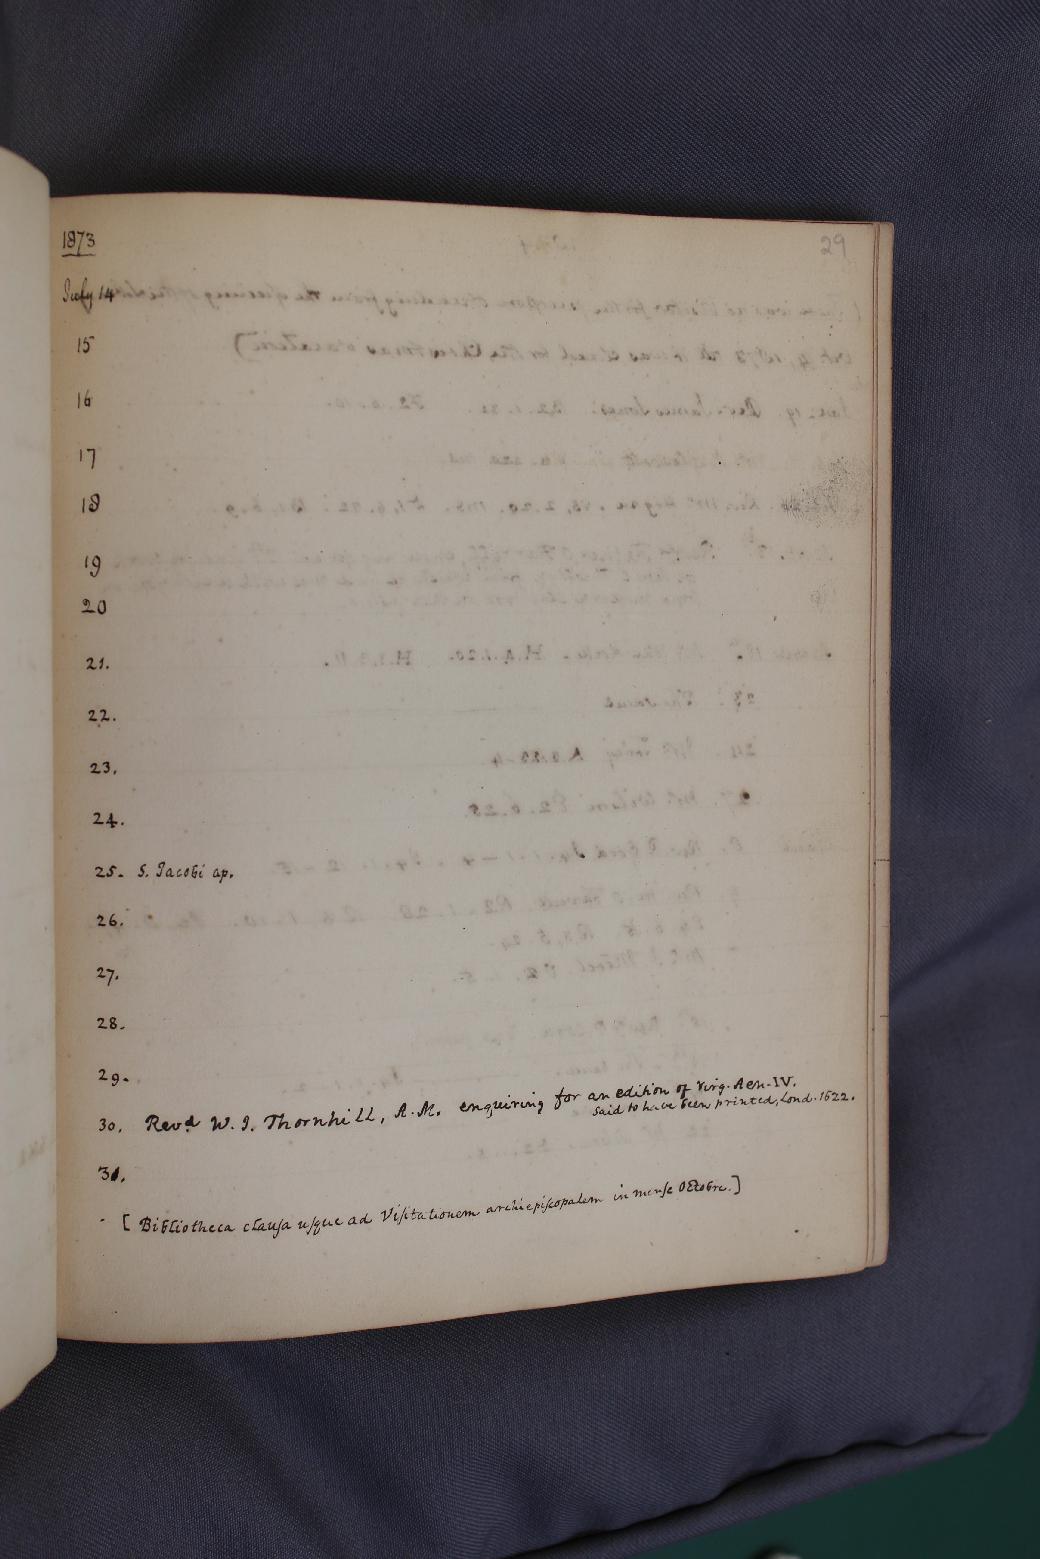 1873
29
July 14
15
16
17
18
19
20
21.
22.
23.
24.
25. S. Jacobi ap.
26.
27.
28.
29.
30. Revd W. J. Thornhill, A.M. enquiring for an edition of Virg. Aen. IV.
said to have been printed, Lond. 1622.
31.
[ Bibliotheca clausa usque ad Visitationem archiepiscopalem in mense Octobre.]